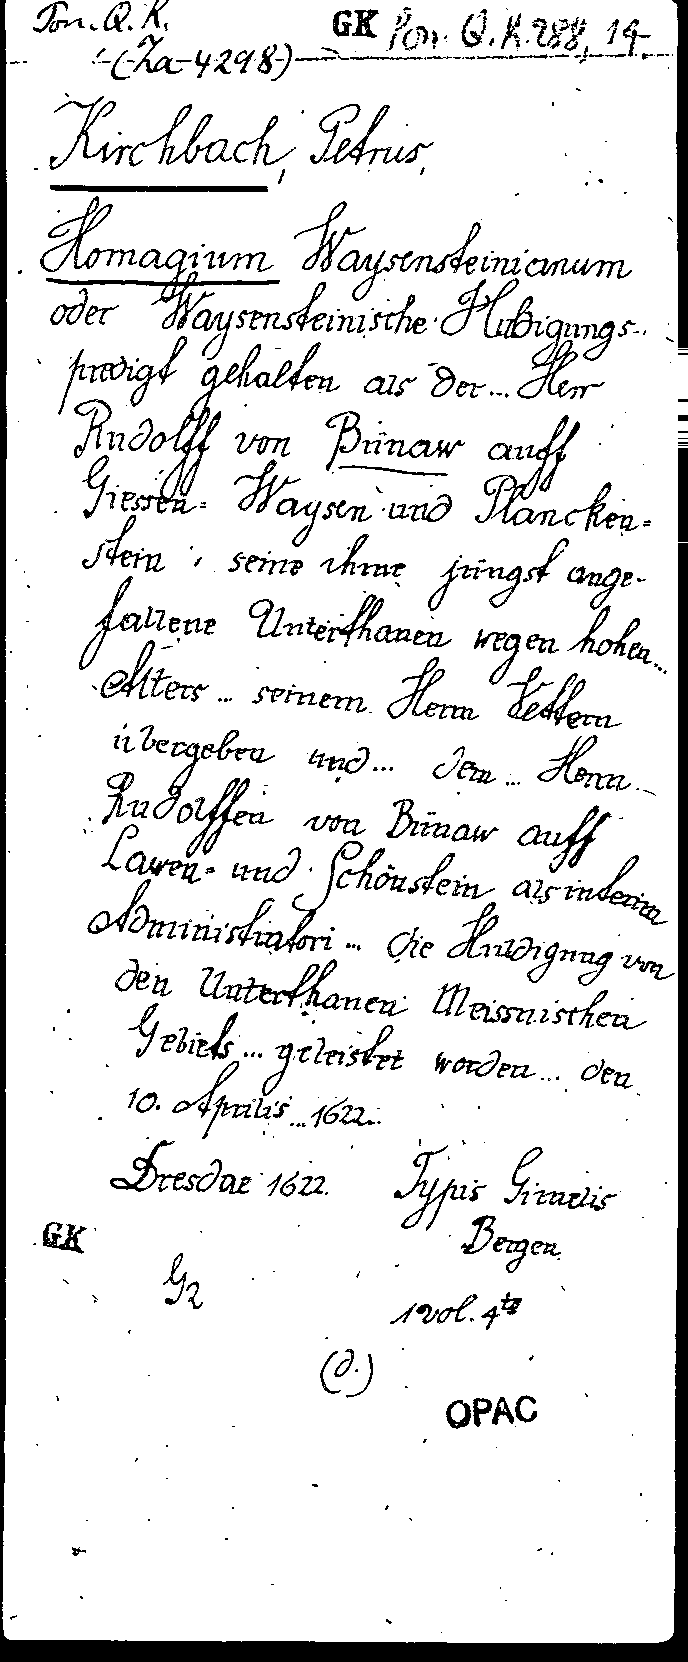 Pon. Q. K.
GK Pon. Q. K. 288, 14.
(Za 4298)
Kirchbach, Petrus,
Homagium Waysensteinianum
oder Waysensteinische Huldigungs-
predigt gehalten als der... Herr
Rudolff von Bünaw auff
Giessen= Waysen und Plancken=
stein, seine ihme jüngst ange-
fallene Unterthanen wegen hohen...
Alters... seinem Herrn Vettern
übergeben und... dem... Herrn
Rudolffen von Bünaw auff
Lawen= und Schönstein als interim
Administratori... die Huldigung von
den Unterthanen Meissnischen
Gebiets... geleistet worden... den
10. Aprilis... 1622.
Dresdae 1622. Typis Gimelis
Bergen
GK
G2
1 vol. 4to
(d.)
OPAC